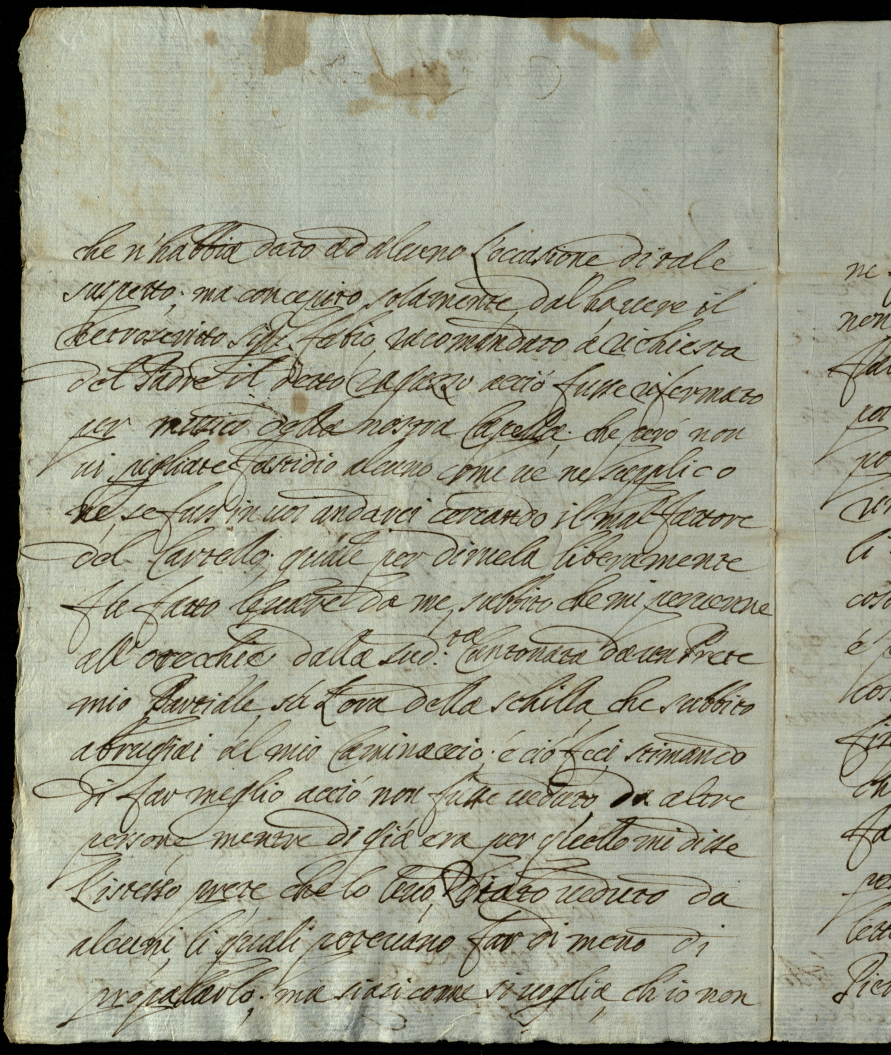 che n'habbia dato ad alcuno l'occasione di tale
suspetto; ma concepito solamente dal havere il
retroscritto Sigr. Fabio racomandato à richiesta
del Padre il detto ragazzo acciò fusse rifermato
per musico della nostra Capella; che però non
vi pigliate fastidio alcuno come ve ne supplico
ne se fussi in voi andarei cercando il mal fattore
del Cartello; quale per dirvela liberamente
fu fatto levare da me, subbito che mi pervenne
all'orecchie dalla sud.ta Cantonata da un Prete
mio Partiale, sù l'ora della schilla, che subbito
abrugiai al mio Caminaccio; é ció feci stimando
di far meglio acció non fusse veduto da altre
persone mentre di giá era per quello mi disse
l'istesso prete che lo levó, stato veduto da
alcuni, li quali potevano far di meno di
propalarlo; ma siasi come si voglia, ch'io non
ne
non